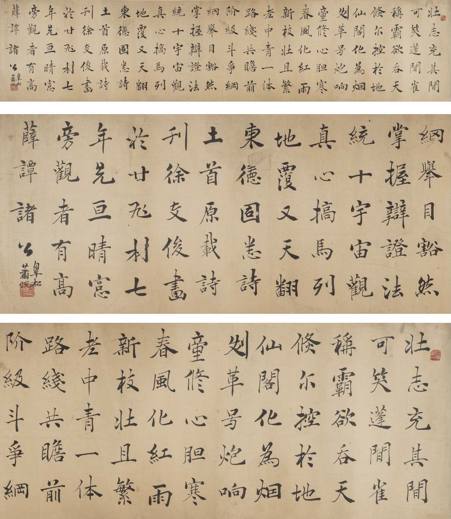 壮志充其間
可笑蓬間雀
稱霸欲吞天
倏尔控於地
仙閣化為烟
革号炮响
童修心胆寒
春風化紅雨
新枝壮且繁
老中青一体
路綫共瞻前
阶級斗爭綱
綱舉目豁然
掌握辯證法
統十宇宙觀
真心搞馬列
地覆又天翻
東德固詩
土首原載詩
刊徐交俊畫
於廿村七
年先亘晴窓
旁觀者有高
薛譚諸公
綱舉目豁然
掌握辯證法
統十宇宙觀
真心搞馬列
地覆又天翻
東德固詩
土首原載詩
刊徐交俊畫
於廿村七
年先亘晴窓
旁觀者有高
薛譚諸公
壮志充其間
可笑蓬間雀
稱霸欲吞天
倏尔控於地
仙閣化為烟
革号炮响
童修心胆寒
春風化紅雨
新枝壮且繁
老中青一体
路綫共瞻前
阶級斗爭綱